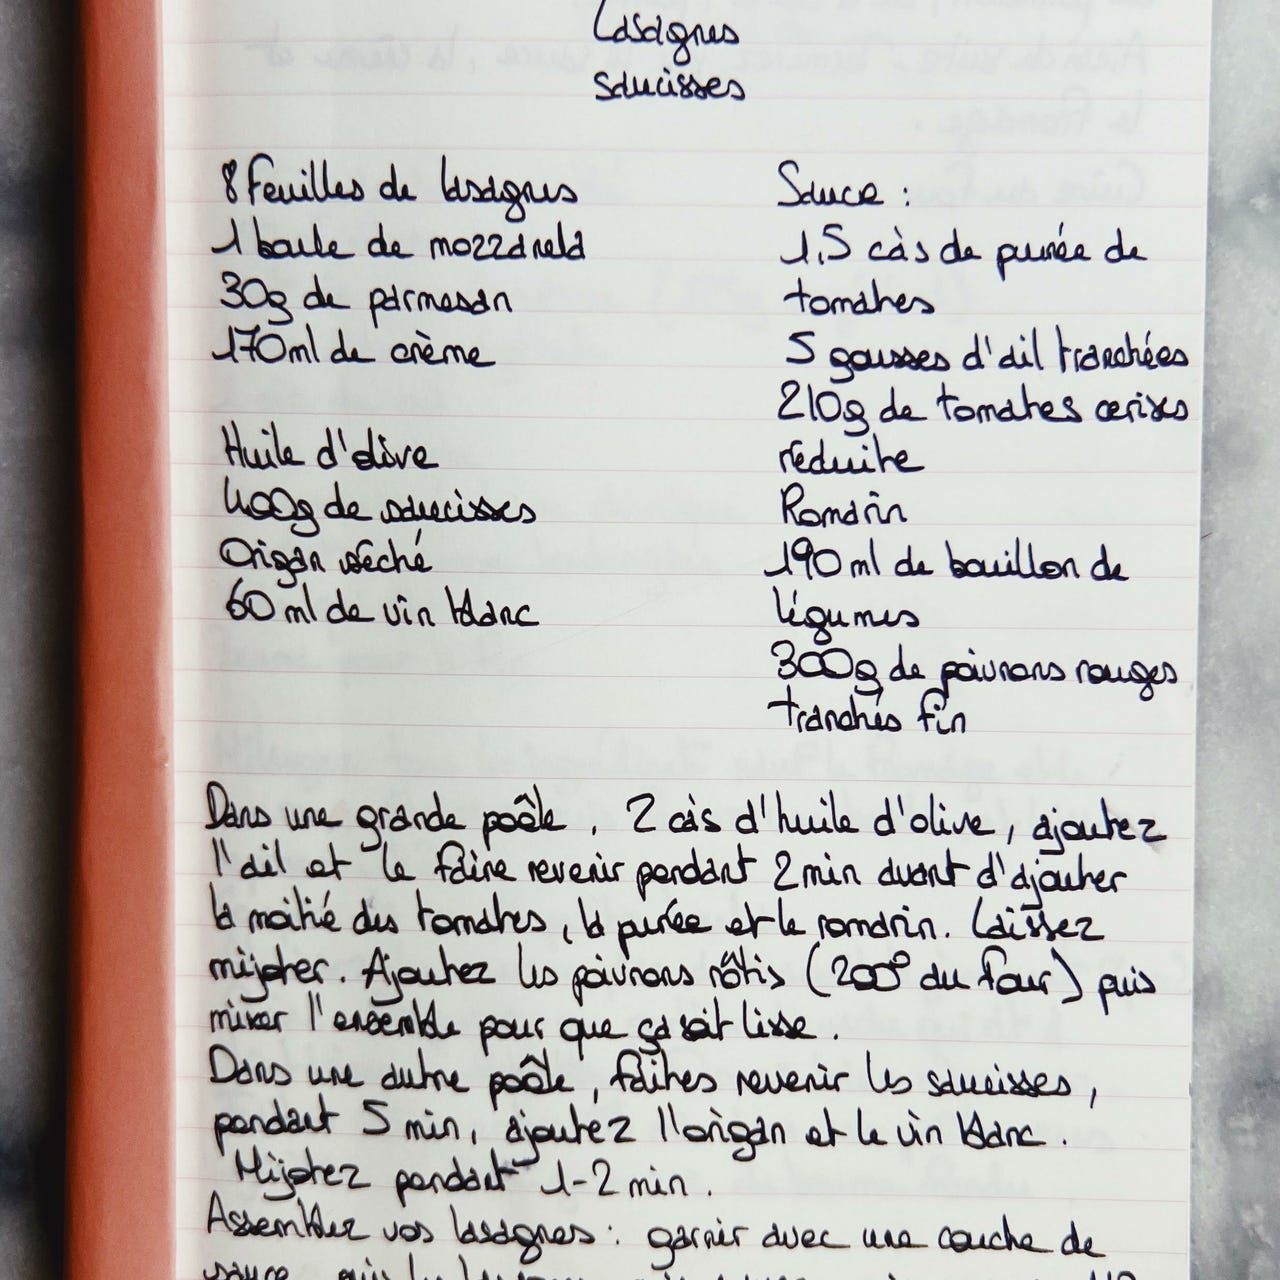 Lasagnes
saucisses
8 feuilles de lasagnes
1 boule de mozzarella
30g de parmesan
170ml de crème
Huile d'olive
400g de saucisses
Origan séché
60ml de vin blanc
Sauce :
1,5 càs de purée de
tomates
5 gousses d'ail tranchées
210g de tomates cerises
réduite
Romarin
190 ml de bouillon de
légumes
300g de poivrons rouges
tranchés fin
Dans une grande poêle, 2 càs d'huile d'olive, ajoutez
l'ail et le faire revenir pendant 2min avant d'ajouter
la moitié des tomates, la purée et le romarin. Laissez
mijoter. Ajoutez les poivrons rôtis (200° du four) puis
mixer l'ensemble pour que ça soit lisse.
Dans une autre poêle, faites revenir les saucisses,
pendant 5 min, ajoutez l'origan et le vin blanc.
Mijotez pendant 1-2 min.
Assemblez vos lasagnes : garnir avec une couche de
sauce, puis les